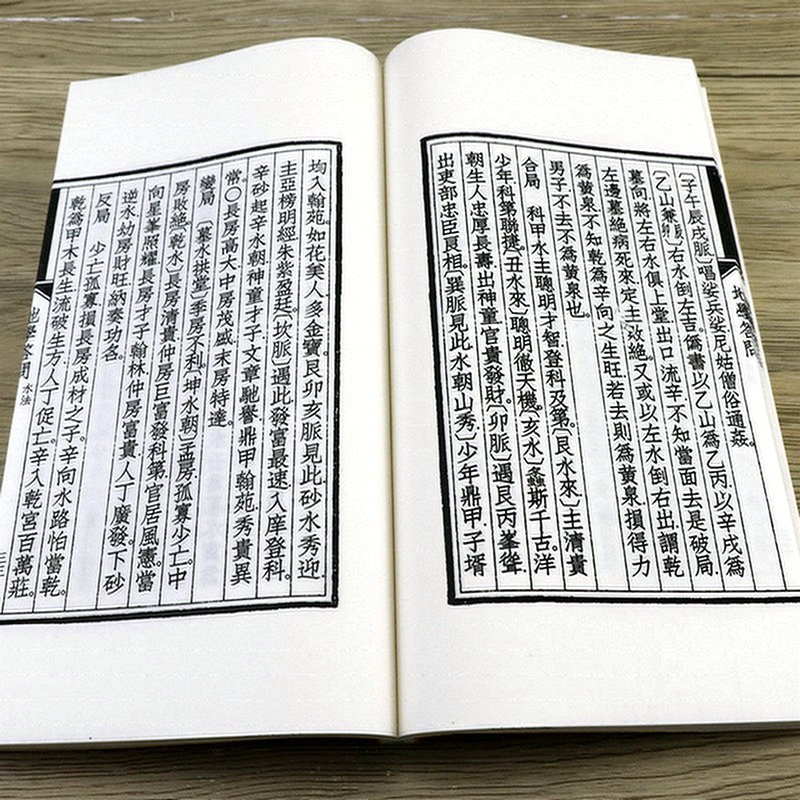 〔子午辰戌脈〕唱娑兵娑尼姑僧俗通姦。
〔乙山兼辰卯〕右水倒左吉。僞書以乙山爲乙丙以辛戌爲
墓向將左右水俱上堂出口流辛不知當面去是破局
左邊墓絕病死來定主敗絕。又或以左水倒右出謂乾
爲黃泉不知乾爲辛向之生旺若去則爲黃泉損得力
男子不去不爲黃泉也。
合局 科甲水主聰明才智登科及第。〔艮水來〕主清貴
少年科第聯捷。〔丑水來〕聰明徹天機。〔亥水〕螽斯千古。洋
朝生人忠厚長壽出神童官貴發財。〔卯脈〕遇艮丙峯聳
出吏部忠臣良相。〔巽脈見此水朝山秀〕少年鼎甲子壻
均入翰苑。如花美人多金寶。艮卯亥脈見此砂水秀迎
主亞榜明經。朱紫盈廷。〔坎脈〕遇此發富最速入庠登科。
辛砂起辛水朝神童才子文章馳譽鼎甲翰苑秀貴異
常○長房高大中房茂盛末房特達。
變局 〔墓水拱堂〕季房不利。〔坤水朝〕孟房孤寡少亡。中
房敗絕。〔乾水〕長房清貴仲房巨富發科第官居風憲。當
向星峯照耀長房才子翰林仲房富貴人丁廣發。下砂
逆水幼房財旺納奏功名
反局 少亡孤寡損長房成材之子。辛向水路怕當乾。
乾爲甲木長生流破生方人丁促亡。辛入乾宮百萬莊。
地學答問
水法